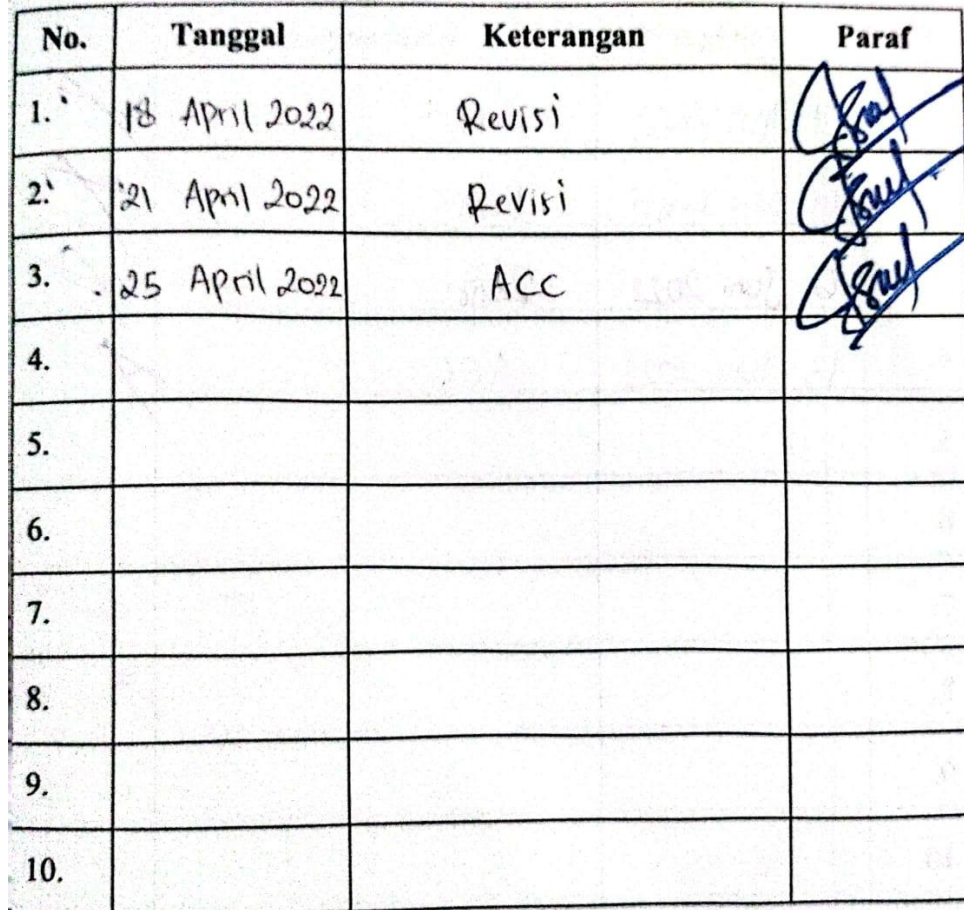 No. Tanggal Keterangan Paraf
1. 18 April 2022 Revisi
2. 21 April 2022 Revisi
3. 25 April 2022 ACC
4.
5.
6.
7.
8.
9.
10.